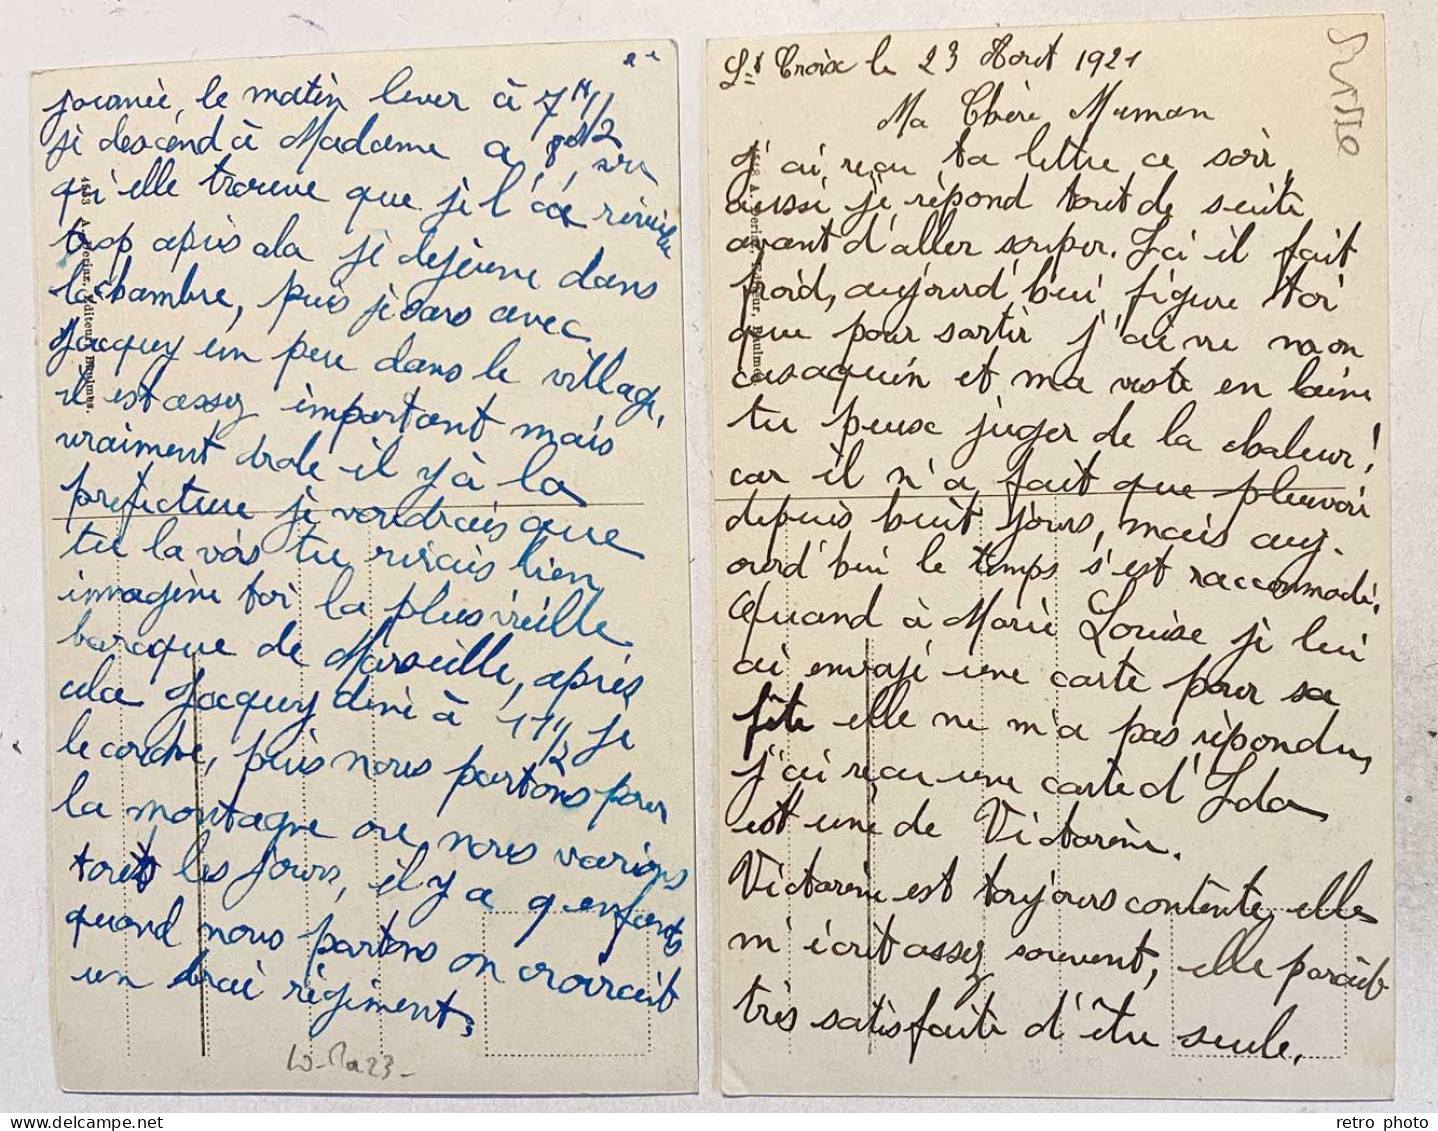 2e
journée, le matin lever à 7H 1/2
je descend à Madame a
qu'elle trouve que je l'ai
trop après cela je dejeune dans
la chambre, puis je vais avec
Jacquy un peu dans le village,
il est assez important mais
vraiment drole il y à la
prefecture je voudrais que
tu la vois tu rirais bien
immagine toi la plus vieille
baraque de Marseille, après
cela Jacquy dine à 11H 1/2 je
le couche, puis nous partons pour
la montagne ou nous varions
touts les jours, il y a 9 enfants
quand nous partons on croirait
un vrai régiment,
Ste Croix le 23 Aout 1921
Ma Chère Maman
J'ai reçu ta lettre ce soir,
aussi je répond tout de suite
avant d'aller souper. Ici il fait
froid, aujourd'hui figure toi
que pour sortir j'ai mon
casaquin et ma veste en laine
tu peux juger de la chaleur!
car il n'a fait que pleuvoir
depuis huit jours, mais auj-
ourd'hui le temps s'est raccommodé.
Quand à Marie Louise je lui
ai envoyé une carte pour sa
fête elle ne m'a pas répondu,
j'ai reçu une carte d'Ida
est une de Victorine.
Victorine est toujours contente, elle
m'écrit assez souvent, elle parait
très satisfaite d'être seule.
retro photo